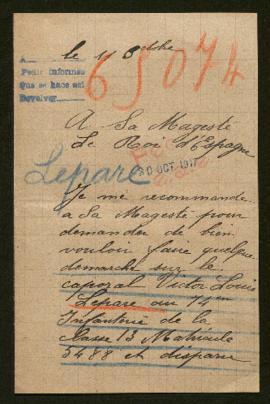 le 4 Octobre
A
Pedir informes
Que se hace así
Devolver
65074
A Sa Magesté
Le Roi d'Espagne
30 OCT 1917
Lepare
Je me recommande
a Sa Magesté pour
demander de bien
vouloir faire quelque
demarche sur le
caporal Victor Louis
Lepare au 74em
Infanterie de la
classe 13 Matricule
5488 et disparu